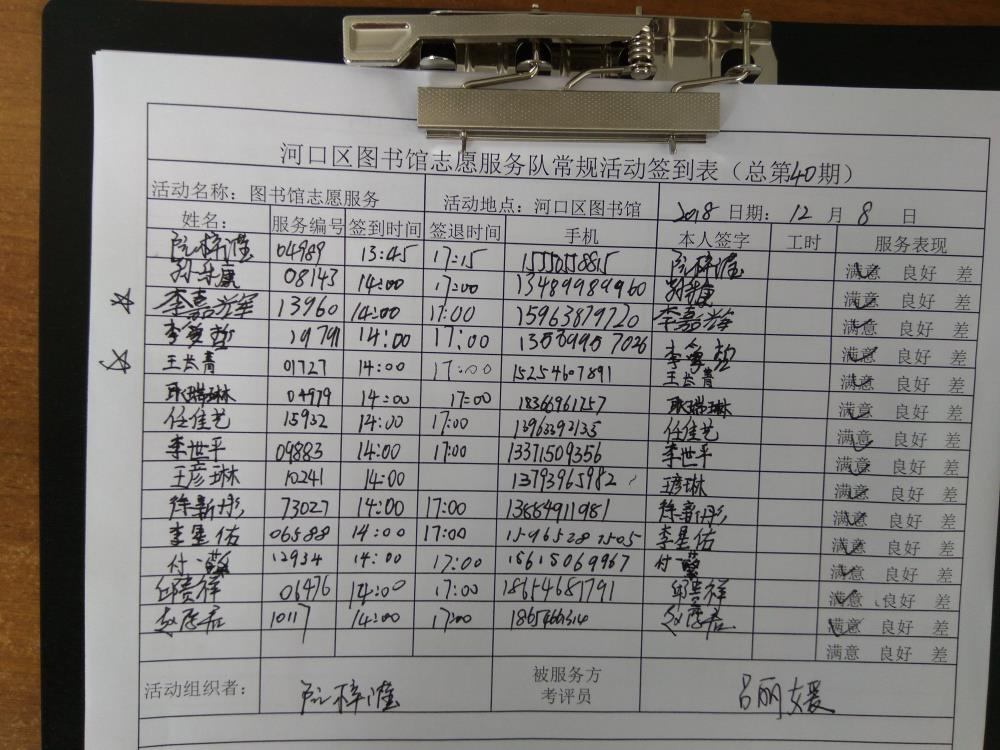 河口区图书馆志愿服务队常规活动签到表（总第40期）
活动名称：图书馆志愿服务 活动地点：河口区图书馆 2018 日期：12 月 8 日
姓名： 服务编号 签到时间 签退时间 手机 本人签字 工时 服务表现
04989 13:45 17:15 满意 良好 差
08143 14:00 17:00 13489989960 满意 良好 差
李嘉辉 13960 14:00 17:00 15963879720 李嘉辉 满意 良好 差
14:00 17:00 满意 良好 差
01727 14:00 17:00 15254607891 满意 良好 差
耿瑞琳 04979 14:00 17:00 18366961257 耿瑞琳 满意 良好 差
任佳艺 15932 14:00 17:00 任佳艺 满意 良好 差
李世平 09883 14:00 17:00 13371509356 李世平 满意 良好 差
王彦琳 10241 14:00 13793965982 王彦琳 满意 良好 差
徐新彤 73027 14:00 17:00 13884911981 徐新彤 满意 良好 差
李星佑 06588 14:00 17:00 15965281505 李星佑 满意 良好 差
12934 14:00 17:00 15615069967 满意 良好 差
邱贵祥 06476 14:00 17:00 18654687791 邱贵祥 满意 良好 差
10117 14:00 17:00 满意 良好 差
满意 良好 差
活动组织者： 被服务方
考评员 吕丽媛